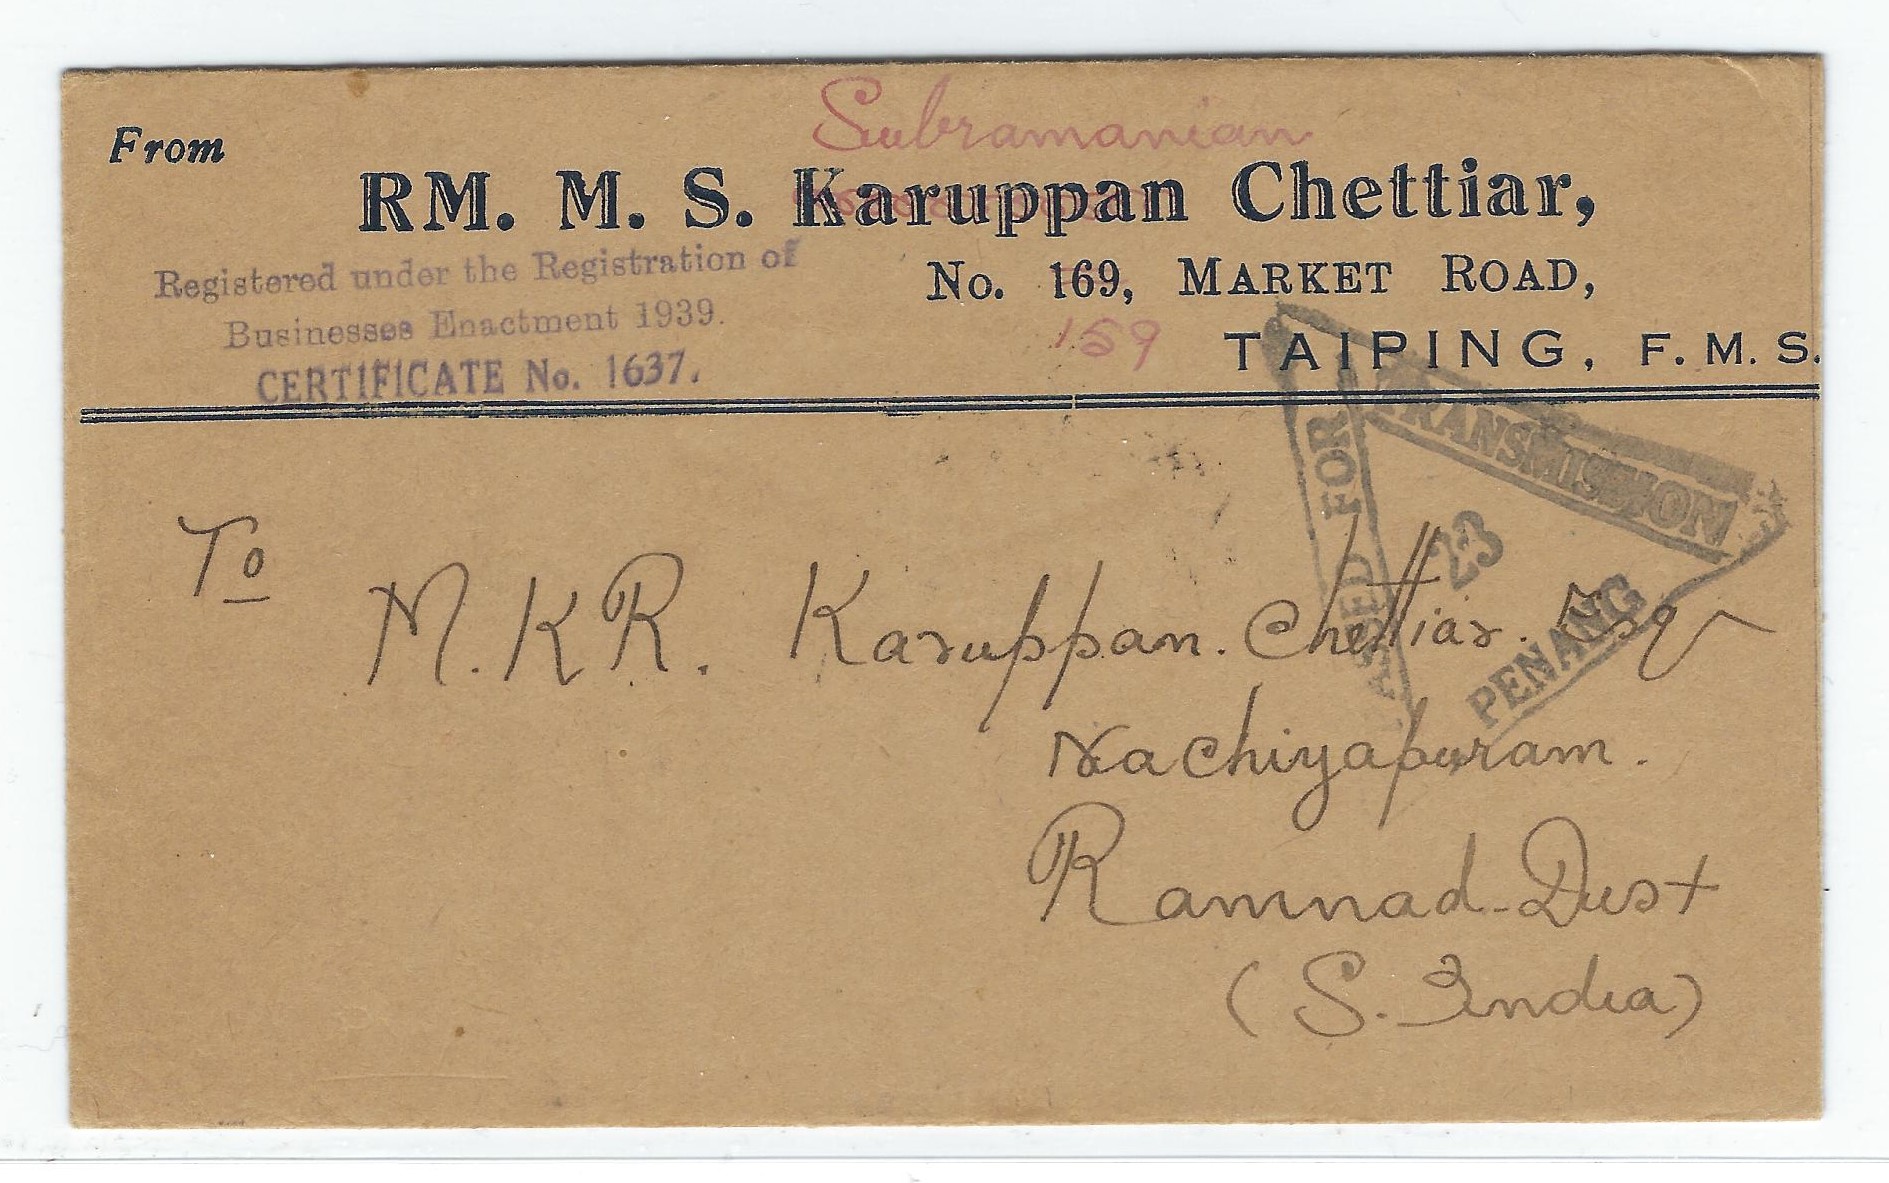 From
Subramanian
RM. M. S. Karuppan Chettiar,
Registered under the Registration of
Businesses Enactment 1939.
CERTIFICATE No. 1637.
No. 169, MARKET ROAD,
159
TAIPING, F. M. S.
PASSED FOR TRANSMISSION
23
PENANG
To
M. K R. Karuppan. Chettiar. Esq
Nachiyapuram.
Ramnad-Dist
(S. India)